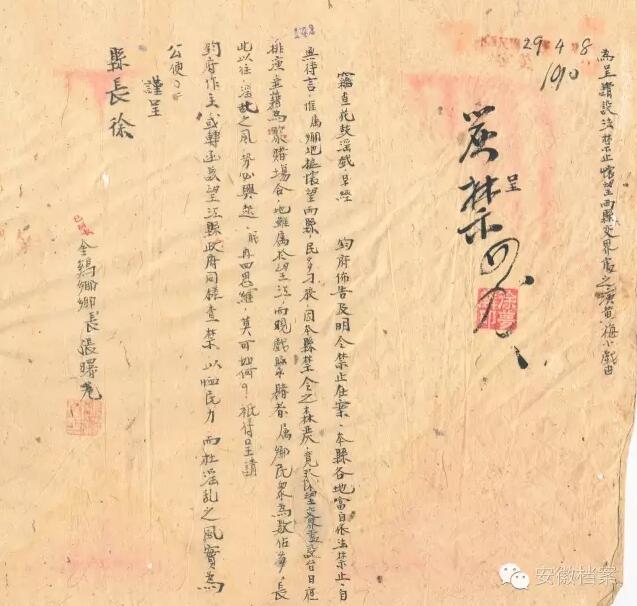 為呈請設法禁止懷望兩縣交界處之演黃梅小戲由
29 4 8
1910
呈
嚴禁
竊查花鼓淫戲,早經 鈞府佈告及明令禁止在案,本縣各地當自依法禁止,自
無待言,惟屬鄉地接懷望兩縣,民多刁狡,因本縣禁令之森嚴,竟於懷望交界處設台日夜
排演並藉為聚賭場合,地雖屬於望江,而觀戲聚賭者,屬鄉民眾為數佔多,長
此以往,淫亂之風,勢必興起,職再四思維,莫可如何,祇得呈請
鈞府作主,或轉函望江縣政府同樣查禁,以恤民力,而杜淫亂之風實為
公便。
謹呈
縣長徐
金鷄鄉鄉長張曙光
安徽档案